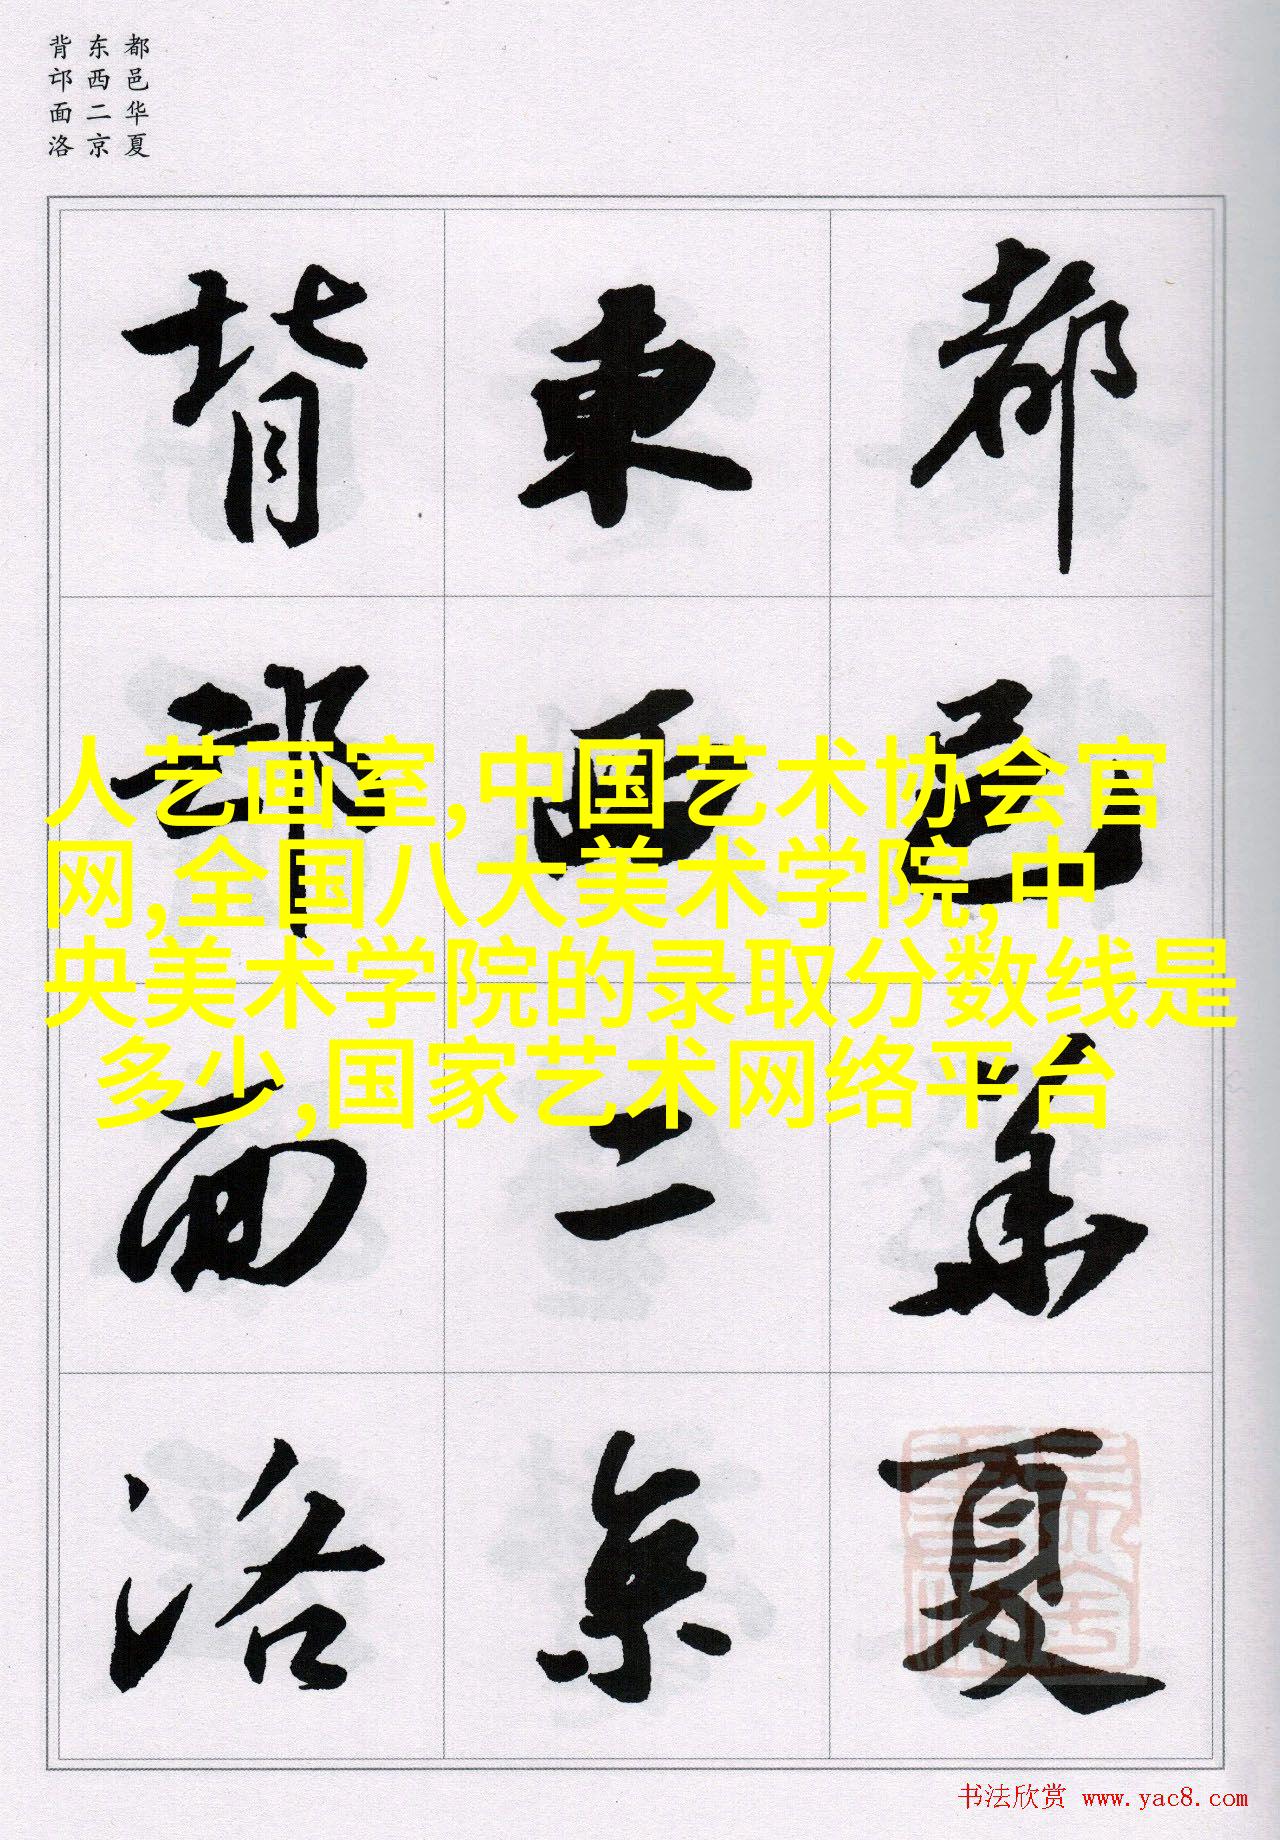 都邑华夏
东西二京
背邙面洛
都邑華夏
東西二京
背邙面洛
人艺画室,中国艺术协会官
网,全国八大美术学院,中
央美术学院的录取分数线是
多少,国家艺术网络平台
书法欣赏 www.yac8.com